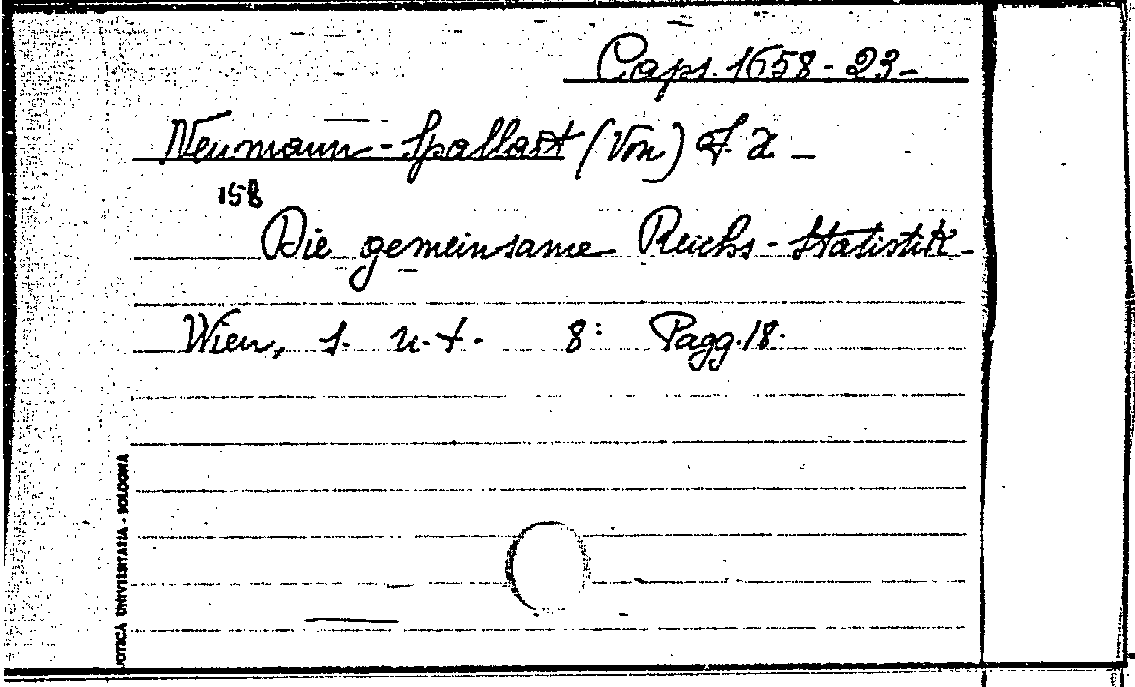 Caps. 1658-23-
Neumann-Spallart (Von) F. X -
158
Die gemeinsame Reichs-Statistik-
Wien, s. n. t. 8: Pagg. 18.
OTECA UNIVERSITARIA - BOLOGNA